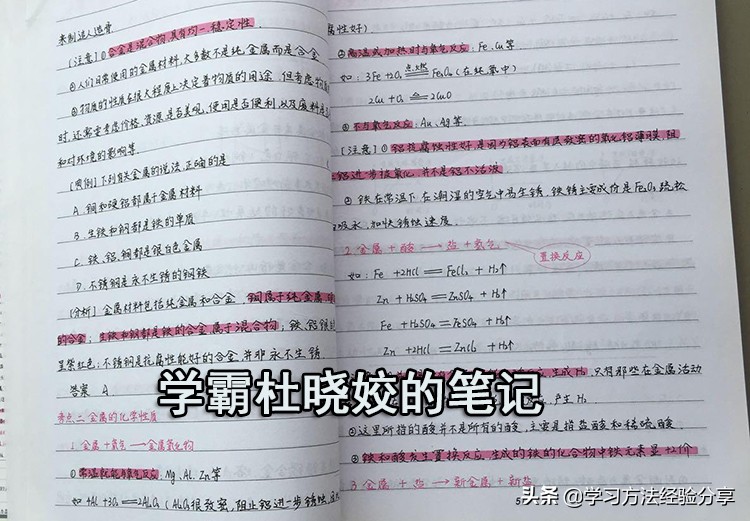 来制造人造骨.
[注意]①合金是混合物,具有均一、稳定性.
②人们日常使用的金属材料,大多数不是纯金属而是合金
③物质的性质在很大程度上决定着物质的用途.但考虑物质
时,还需要考虑价格、资源、是否美观、使用是否便利,以及废料是
和对环境的影响等.
[典例]下列有关金属的说法,正确的是
A.铜和硬铝都属于金属材料
B.生铁和钢都是铁的单质
C.铁、铝、铜都是银白色金属
D.不锈钢是永不生锈的钢铁
[分析]金属材料包括纯金属和合金.铜属于纯金属,
的合金;生铁和钢都是铁的合金,属于混合物;铁、铝银
呈紫红色;不锈钢是抗腐性能好的合金,并非永不生锈.
答案 A
考点二 金属的化学性质
1.金属+氧气→金属氧化物
①常温就能与氧气反应:Mg、Al、Zn等
如4Al+3O₂=2Al₂O₃(Al₂O₃很致密,阻止铝进一步锈蚀,
腐性好)
②高温或加热时与氧气反应:Fe、Cu等
如:3Fe+2O₂ 点燃 Fe₃O₄(在纯氧中)
2Cu+O₂ △ 2CuO
③不与氧气反应:Au、Ag等.
[注意]①铝抗腐蚀性好,是因为铝表面有层致密的氧化铝薄膜,阻
铝进一步被氧化,并不是铝不活泼
②铁在常温下在潮湿的空气中易生锈,铁锈主要成份是Fe₂O₃疏松
吸水,加快锈蚀速度.
2.金属+酸→盐+氢气
置换反应
如:Fe+2HCl=FeCl₂+H₂↑
Zn+H₂SO₄=ZnSO₄+H₂↑
Fe+H₂SO₄=FeSO₄+H₂↑
Zn+2HCl=ZnCl₂+H₂↑
生成H₂,只有那些在金属活动
产生H₂
②这里所指的酸并不是所有的酸,主要是指盐酸和稀硫酸.
③铁和酸发生置换反应,生成的铁的化合物中铁元素显+2价
3.金属+盐→新金属+新盐
学霸杜晓姣的笔记
头条@学习方法经验分享